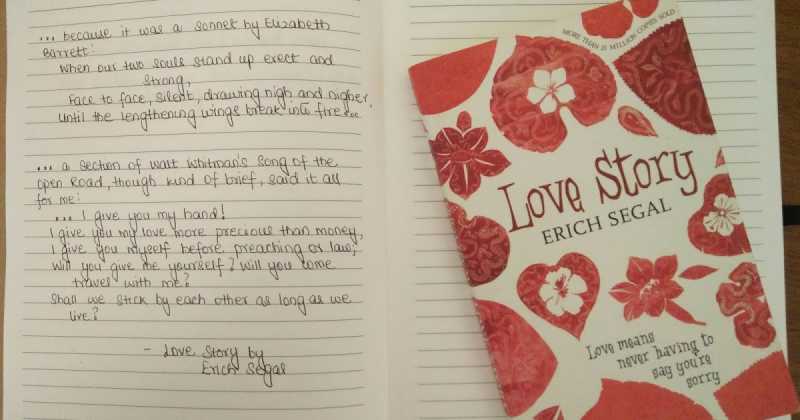 ... because it was a sonnet by Elizabeth
Barrett:
When our two souls stand up erect and
strong,
Face to face, silent, drawing nigh and nigher,
Until the lengthening wings break into fire...
... a section of Walt Whitman's Song of the
Open Road, though kind of brief, said it all
for me:
... I give you my hand!
I give you my love more precious than money,
I give you myself before preaching or law;
Will you give me yourself? Will you come
travel with me?
Shall we stick by each other as long as we
live?
- Love Story by
Erich Segal
MORE THAN 21 MILLION COPIES SOLD
Love Story
ERICH SEGAL
Love means
never having to
say you're
sorry